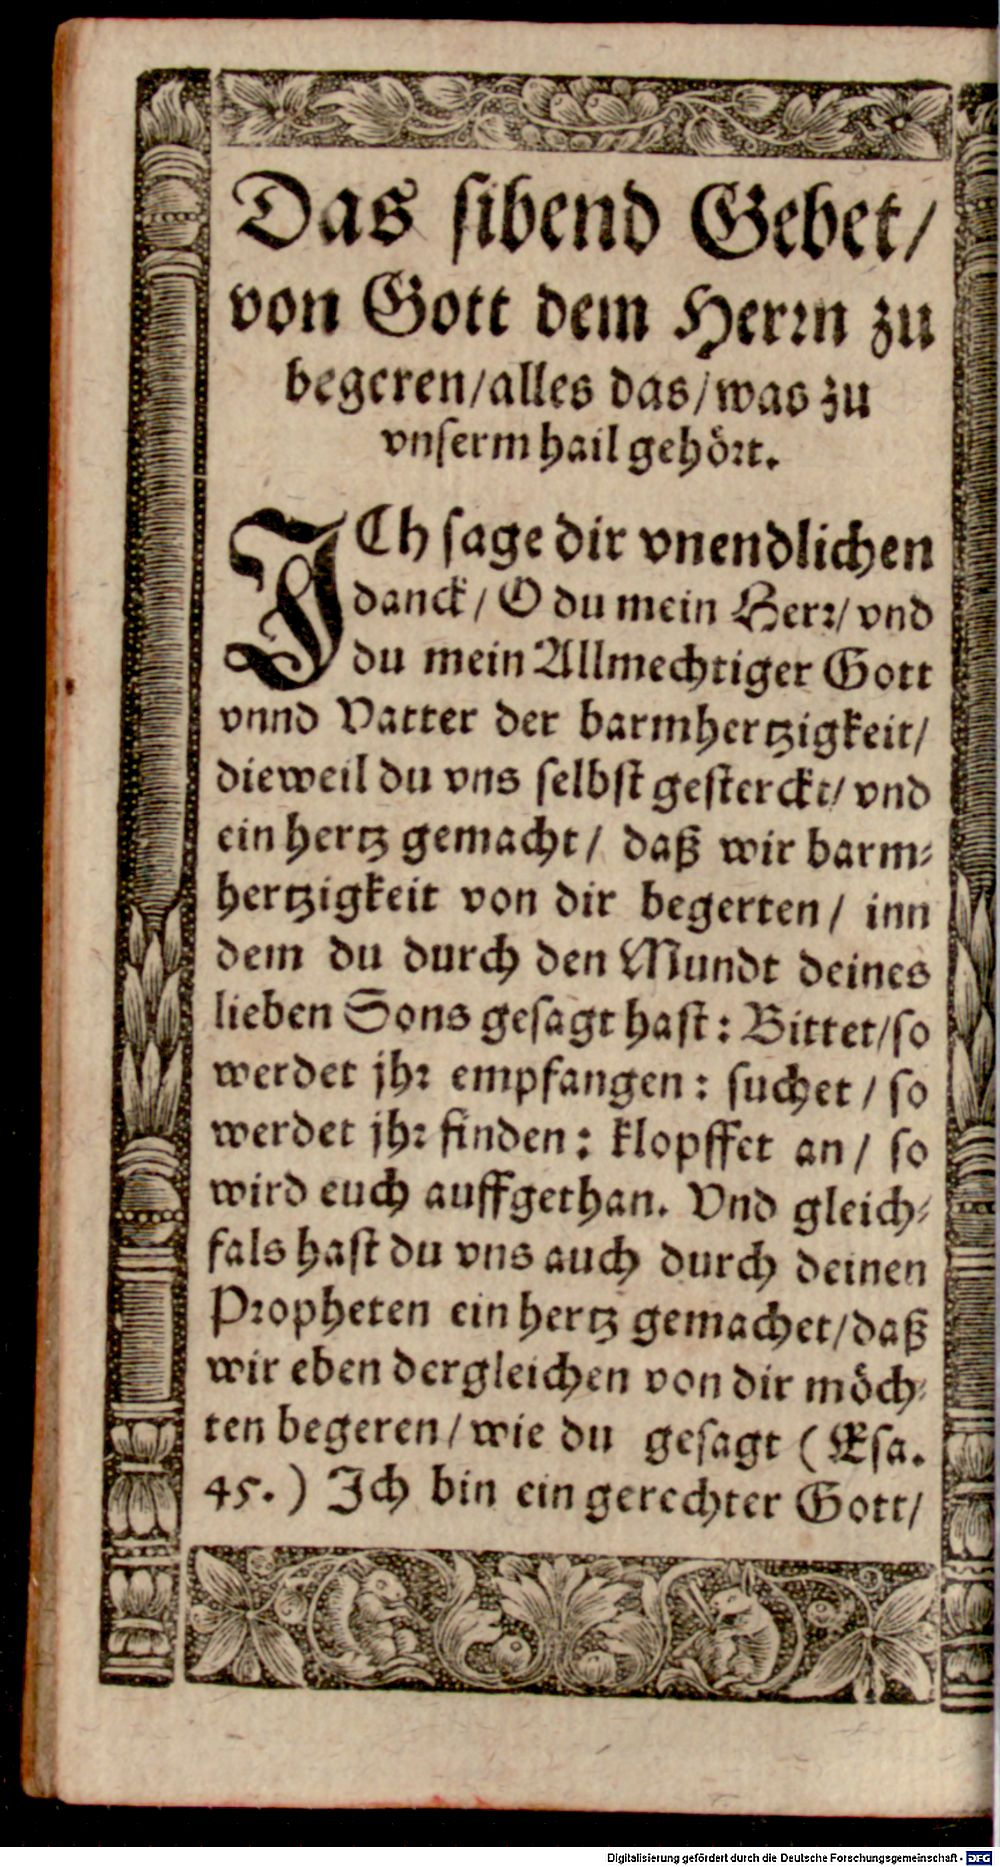 Das sibend Gebet/
von Gott dem Herrn zu
begeren/alles das/was zu
vnserm hail gehört.
ICh sage dir vnendlichen
danck/ O du mein Herr/ vnd
du mein Allmechtiger Gott
vnnd Vatter der barmhertzigkeit/
dieweil du vns selbst gesterckt/ vnd
ein hertz gemacht/ daß wir barm-
hertzigkeit von dir begerten/ inn
dem du durch den Mundt deines
lieben Sons gesagt hast: Bittet/so
werdet jhr empfangen: suchet/ so
werdet jhr finden: klopffet an/ so
wird euch auffgethan. Vnd gleich-
fals hast du vns auch durch deinen
Propheten ein hertz gemachet/daß
wir eben dergleichen von dir möch-
ten begeren/wie du gesagt (Esa.
45.) Ich bin ein gerechter Gott/
Digitalisierung gefördert durch die Deutsche Forschungsgemeinschaft - DFG